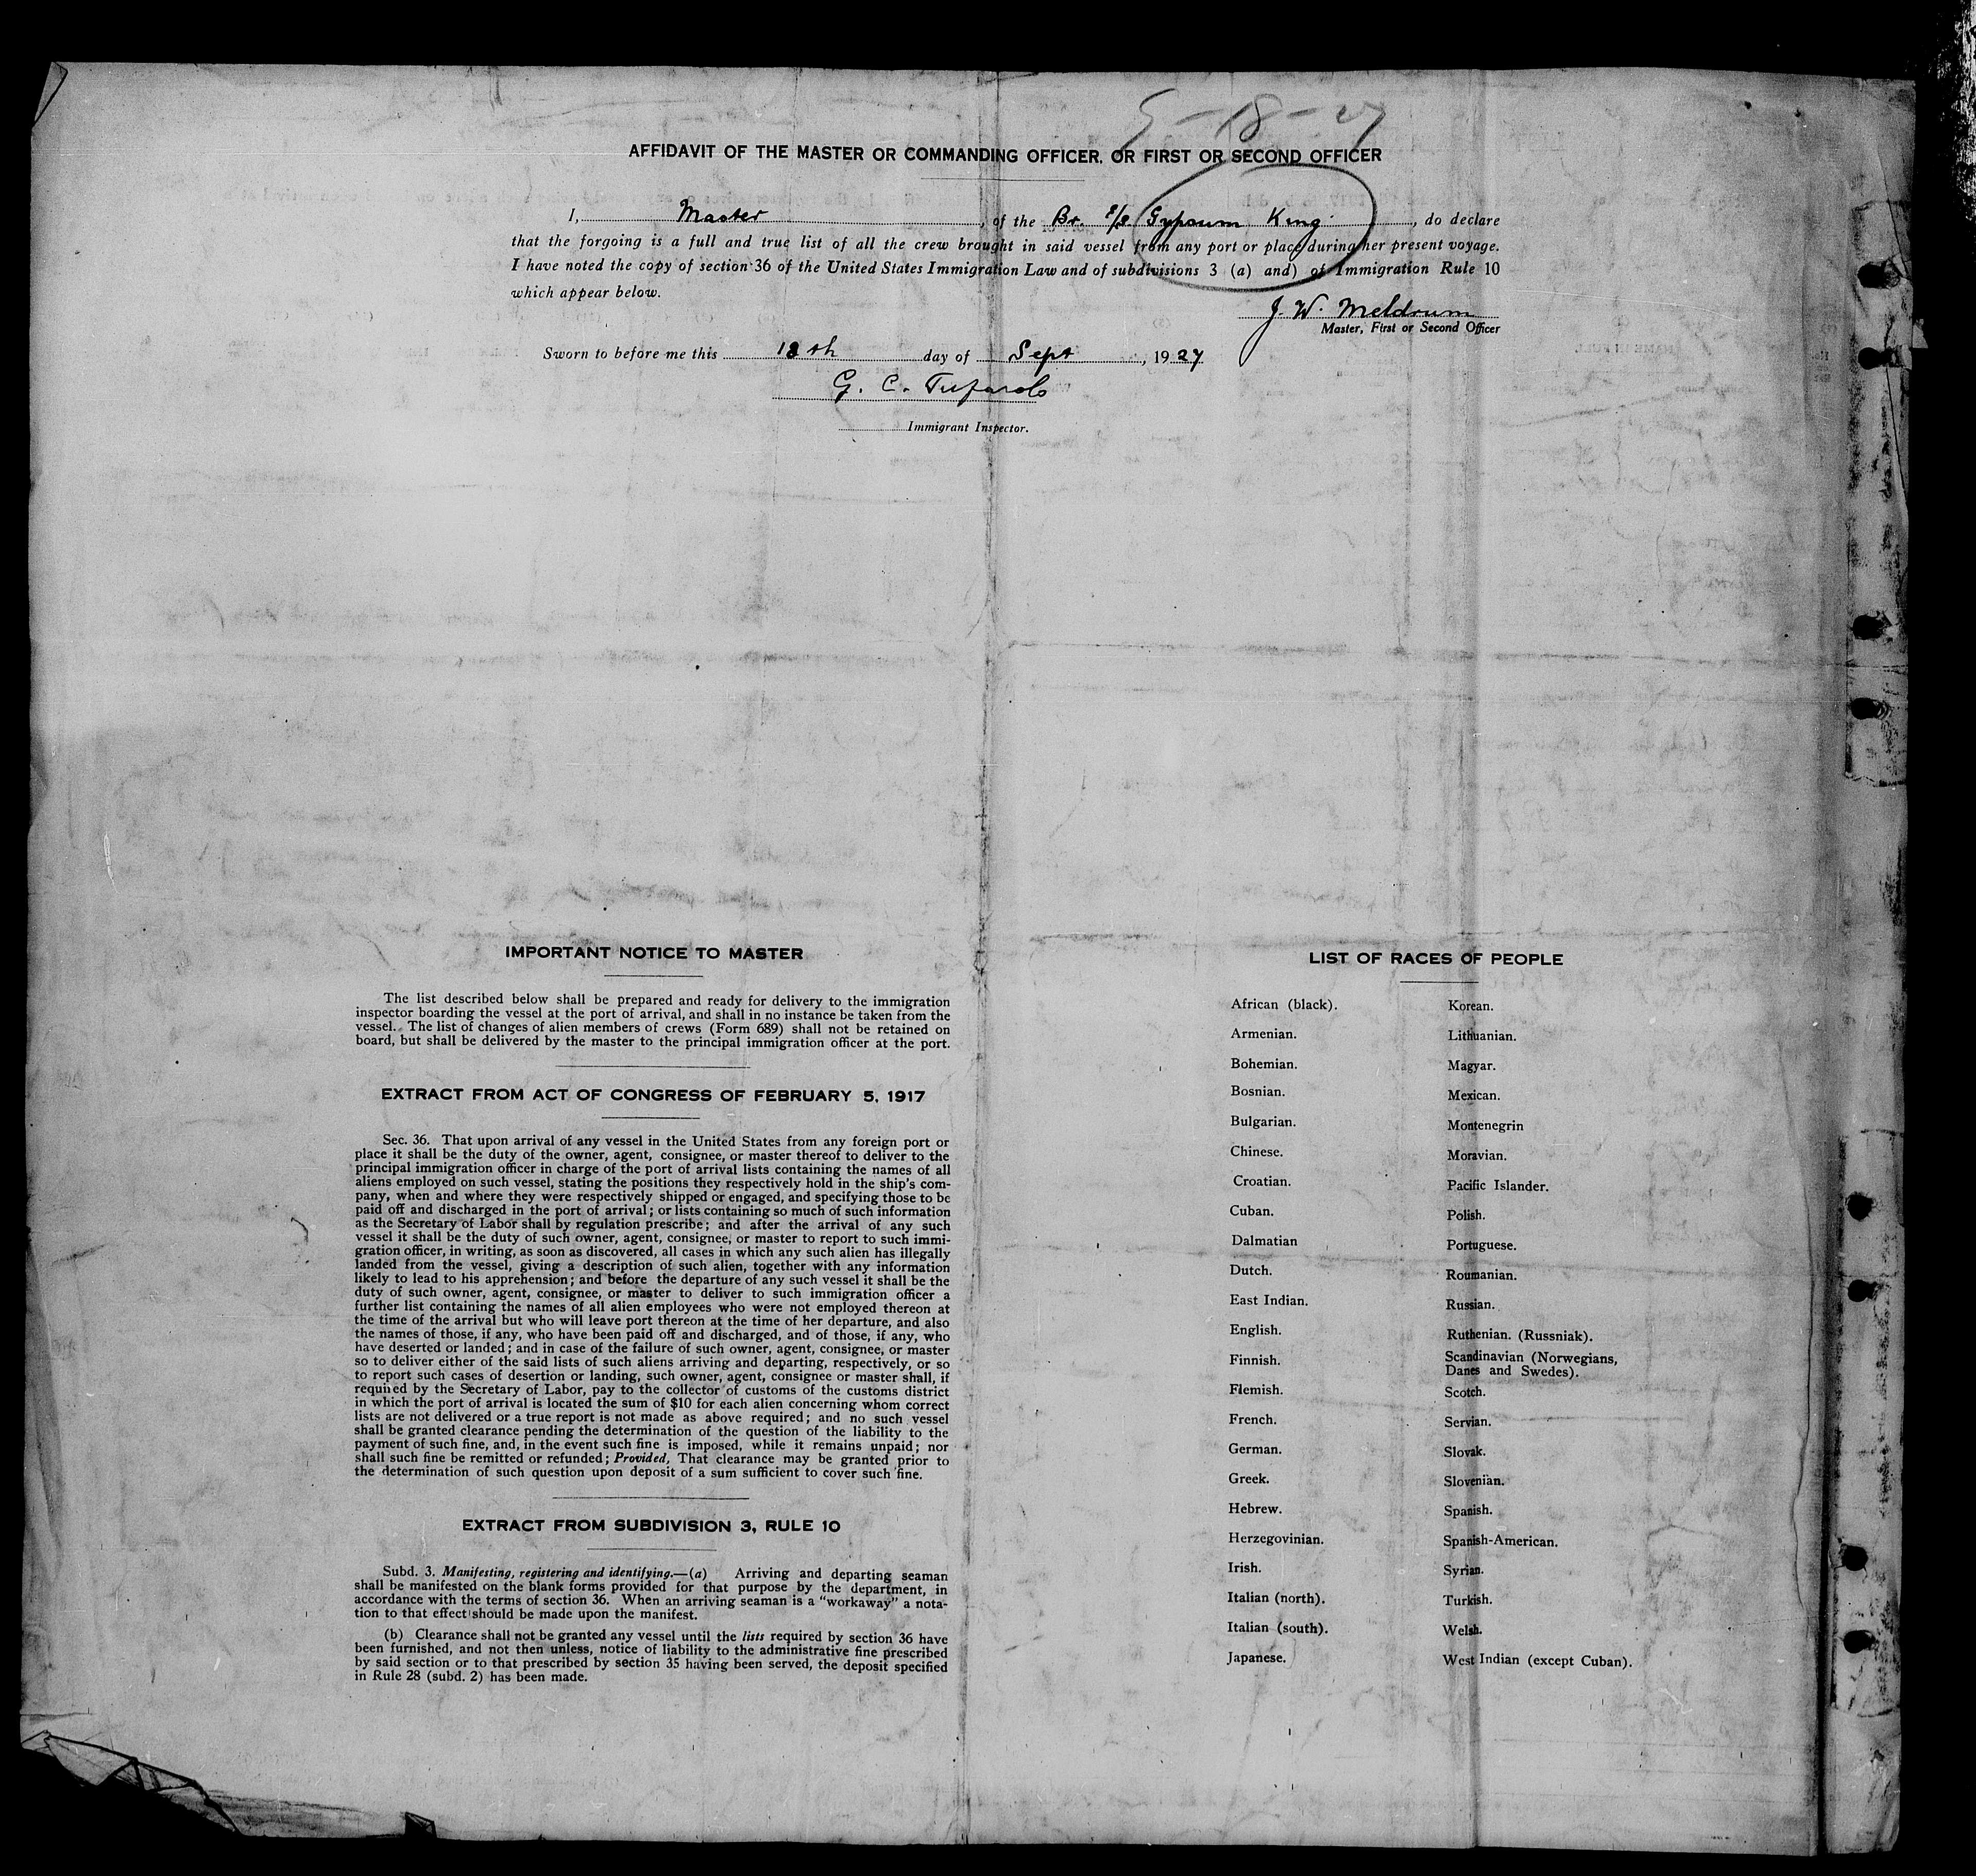 9-18-27
AFFIDAVIT OF THE MASTER OR COMMANDING OFFICER, OR FIRST OR SECOND OFFICER
I, Master, of the Br. S/S. Gypsum King, do declare
that the forgoing is a full and true list of all the crew brought in said vessel from any port or place during her present voyage.
I have noted the copy of section 36 of the United States Immigration Law and of subdivisions 3 (a) and) of Immigration Rule 10
which appear below.
J. W. Meldrum
Master, First or Second Officer
Sworn to before me this 18th day of Sept, 1927
G. C.
Immigrant Inspector.
IMPORTANT NOTICE TO MASTER
The list described below shall be prepared and ready for delivery to the immigration
inspector boarding the vessel at the port of arrival, and shall in no instance be taken from the
vessel. The list of changes of alien members of crews (Form 689) shall not be retained on
board, but shall be delivered by the master to the principal immigration officer at the port.
EXTRACT FROM ACT OF CONGRESS OF FEBRUARY 5, 1917
Sec. 36. That upon arrival of any vessel in the United States from any foreign port or
place it shall be the duty of the owner, agent, consignee, or master thereof to deliver to the
principal immigration officer in charge of the port of arrival lists containing the names of all
aliens employed on such vessel, stating the positions they respectively hold in the ship's com-
pany, when and where they were respectively shipped or engaged, and specifying those to be
paid off and discharged in the port of arrival; or lists containing so much of such information
as the Secretary of Labor shall by regulation prescribe; and after the arrival of any such
vessel it shall be the duty of such owner, agent, consignee, or master to report to such immi-
gration officer, in writing, as soon as discovered, all cases in which any such alien has illegally
landed from the vessel, giving a description of such alien, together with any information
likely to lead to his apprehension; and before the departure of any such vessel it shall be the
duty of such owner, agent, consignee, or master to deliver to such immigration officer a
further list containing the names of all alien employees who were not employed thereon at
the time of the arrival but who will leave port thereon at the time of her departure, and also
the names of those, if any, who have been paid off and discharged, and of those, if any, who
have deserted or landed; and in case of the failure of such owner, agent, consignee, or master
so to deliver either of the said lists of such aliens arriving and departing, respectively, or so
to report such cases of desertion or landing, such owner, agent, consignee or master shall, if
required by the Secretary of Labor, pay to the collector of customs of the customs district
in which the port of arrival is located the sum of $10 for each alien concerning whom correct
lists are not delivered or a true report is not made as above required; and no such vessel
shall be granted clearance pending the determination of the question of the liability to the
payment of such fine, and, in the event such fine is imposed, while it remains unpaid; nor
shall such fine be remitted or refunded; Provided, That clearance may be granted prior to
the determination of such question upon deposit of a sum sufficient to cover such fine.
EXTRACT FROM SUBDIVISION 3, RULE 10
Subd. 3. Manifesting, registering and identifying.—(a) Arriving and departing seaman
shall be manifested on the blank forms provided for that purpose by the department, in
accordance with the terms of section 36. When an arriving seaman is a "workaway" a nota-
tion to that effect should be made upon the manifest.
(b) Clearance shall not be granted any vessel until the lists required by section 36 have
been furnished, and not then unless, notice of liability to the administrative fine prescribed
by said section or to that prescribed by section 35 having been served, the deposit specified
in Rule 28 (subd. 2) has been made.
LIST OF RACES OF PEOPLE
African (black).
Armenian.
Bohemian.
Bosnian.
Bulgarian.
Chinese.
Croatian.
Cuban.
Dalmatian
Dutch.
East Indian.
English.
Finnish.
Flemish.
French.
German.
Greek.
Hebrew.
Herzegovinian.
Irish.
Italian (north).
Italian (south).
Japanese.
Korean.
Lithuanian.
Magyar.
Mexican.
Montenegrin
Moravian.
Pacific Islander.
Polish.
Portuguese.
Roumanian.
Russian.
Ruthenian. (Russniak).
Scandinavian (Norwegians,
Danes and Swedes).
Scotch.
Servian.
Slovak.
Slovenian.
Spanish.
Spanish-American.
Syrian.
Turkish.
Welsh.
West Indian (except Cuban).